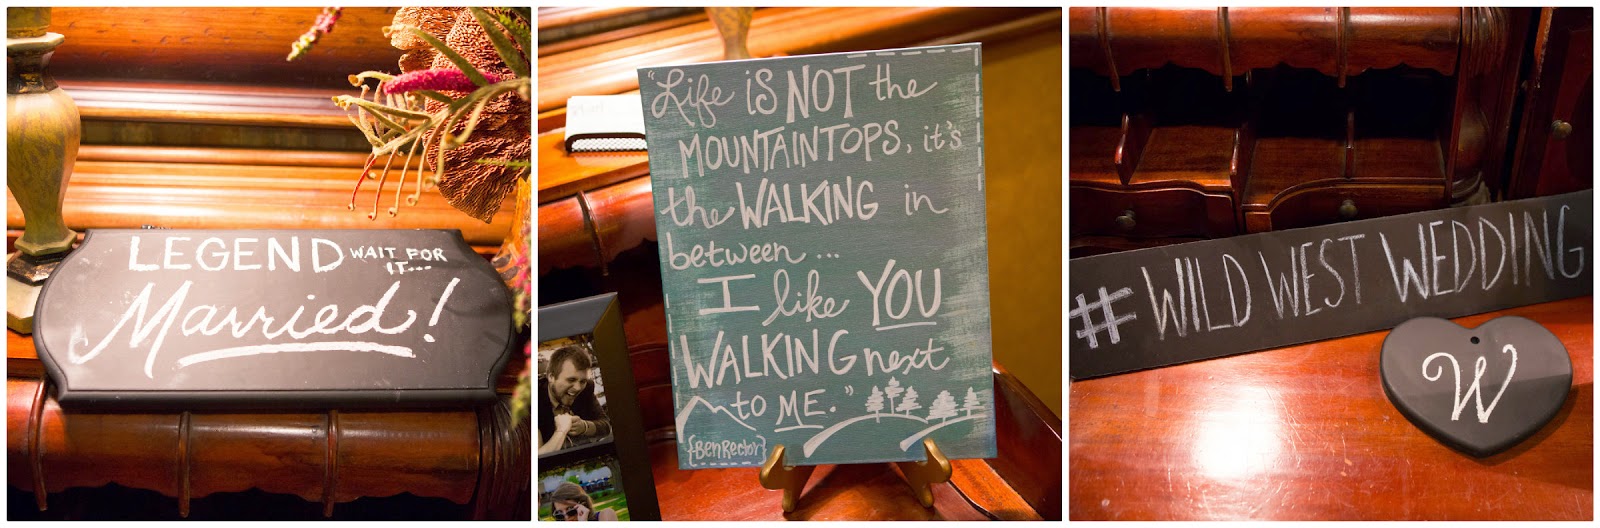 LEGEND WAIT FOR
IT...
Married!
"Life iS NOT the
MOUNTAINTOPS, it's
the WALKING in
between...
I like YOU
WALKING next
to ME."
{BenRector}
#WILD WEST WEDDING
W